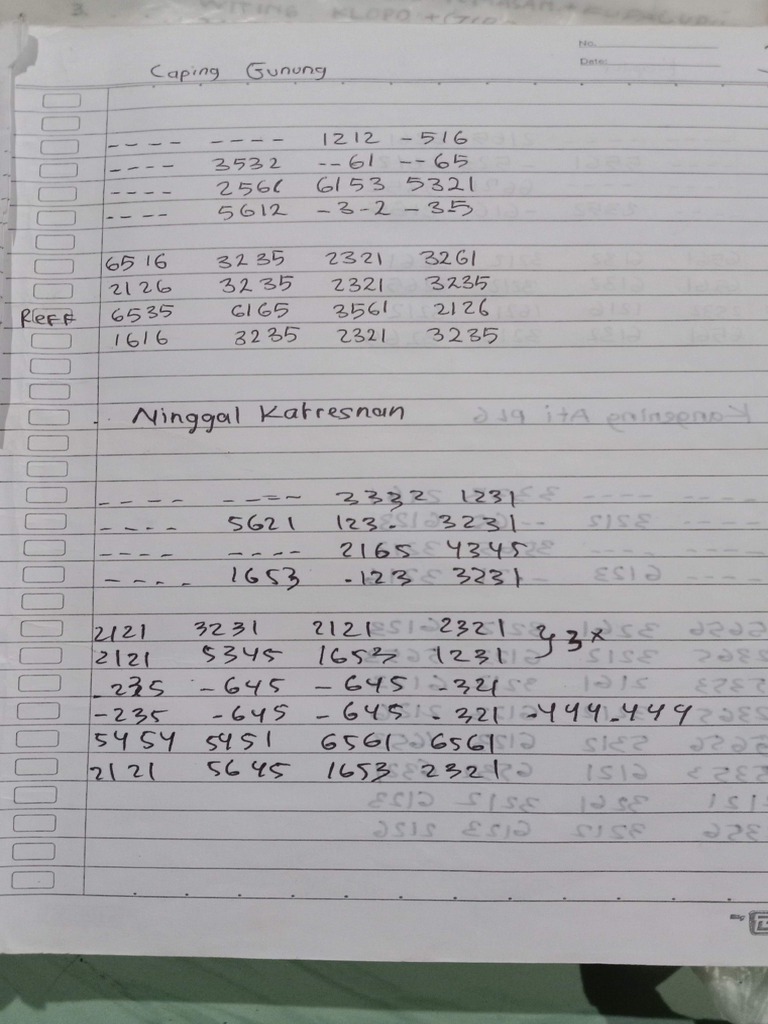 3
WITING KLOPO +
No.
Date:
Caping Gunung
---- ---- 1212 -516
---- 3532 --61 --65
---- 2566 6153 5321
---- 5612 -3-2 -35
6516 3235 2321 3261
2126 3235 2321 3235
Reff 6535 6165 3561 2126
1616 3235 2321 3235
Ninggal Katresnan
---- ---- 3332 1231
---- 5621 123- 3231
---- ---- 2165 4345
---- 1653 -123 3231
2121 3231 2121 2321 } 3x
2121 5345 1653 1231
-235 -645 -645 -321
-235 -645 -645 -321 -444-444
5454 5451 6561 6561
2121 5645 1653 2321